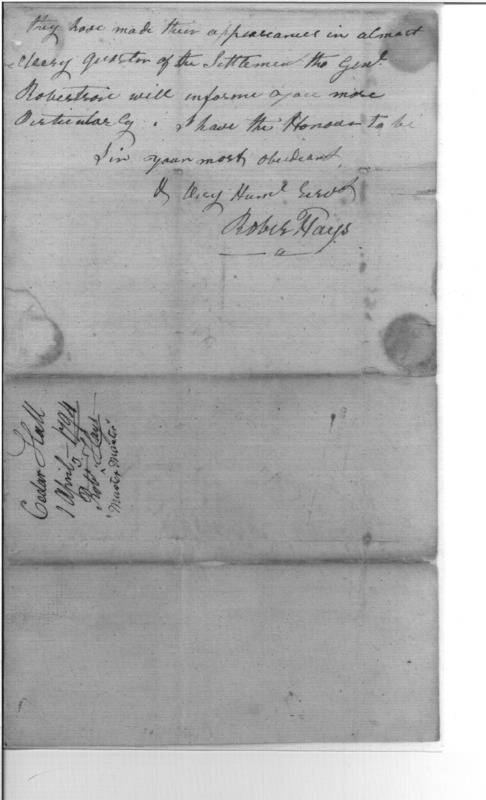 they have made their appearances in almost
every quarter of the Settlement the Genl.
Robertson will informe you more
Perticularly. I have the Honour to be
Sir your most obediant
& Very Huml. Servt
Robt. Hays
Cedar Hall
1 April 1794
Robt. Hays
Muster Master